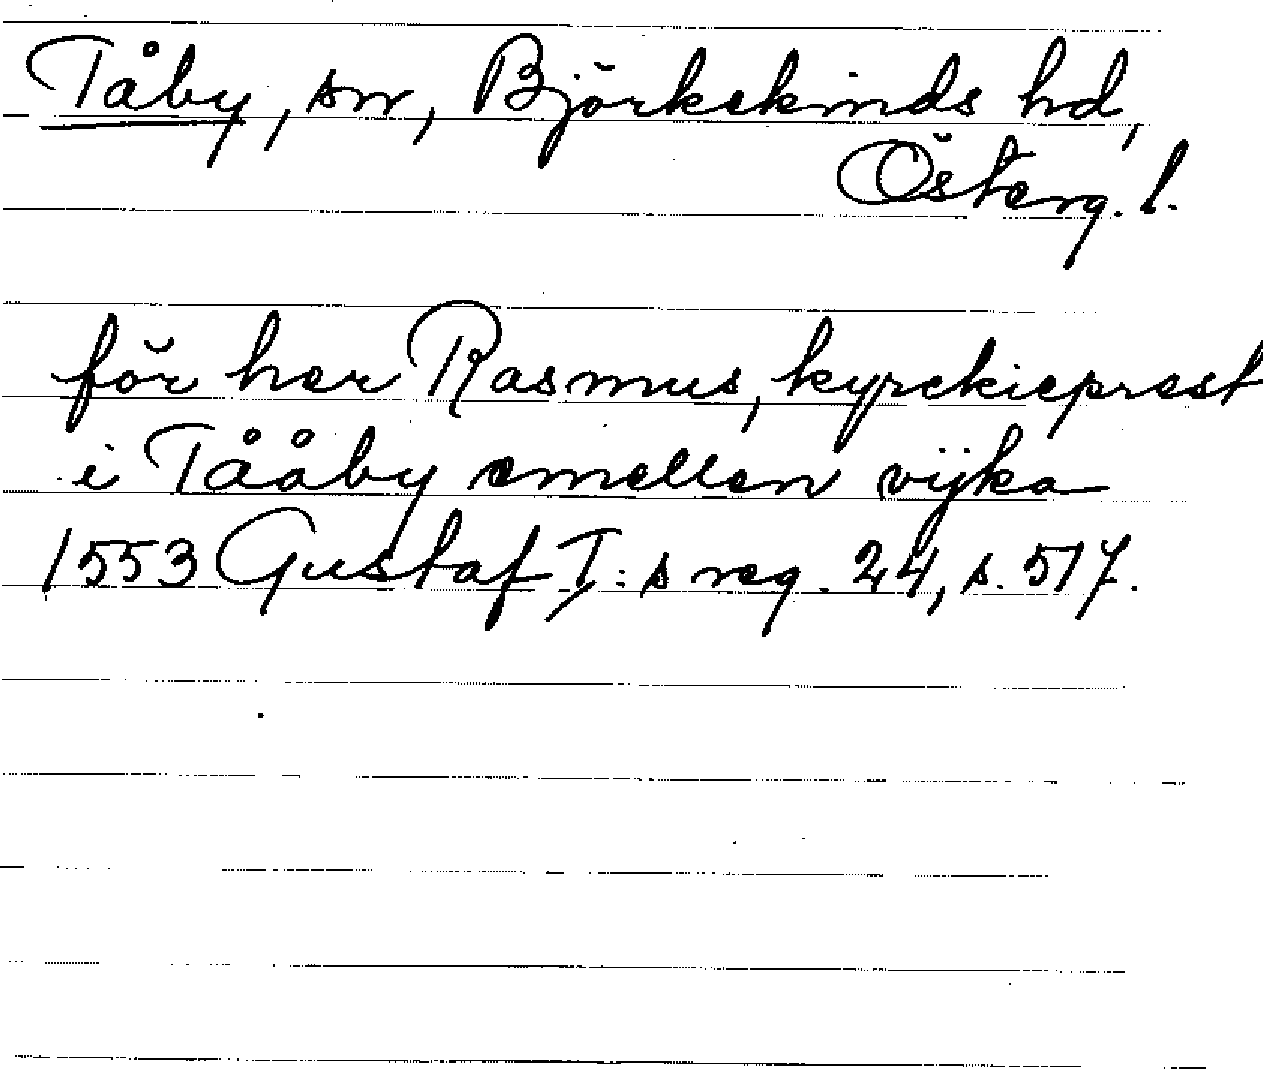 Tåby, sn, Björkekinds hd,
Österg. l.
för her Rasmus, kyrckieprest
i Tååby emellen vijka
1553 Gustaf I:s reg. 24, s. 517.